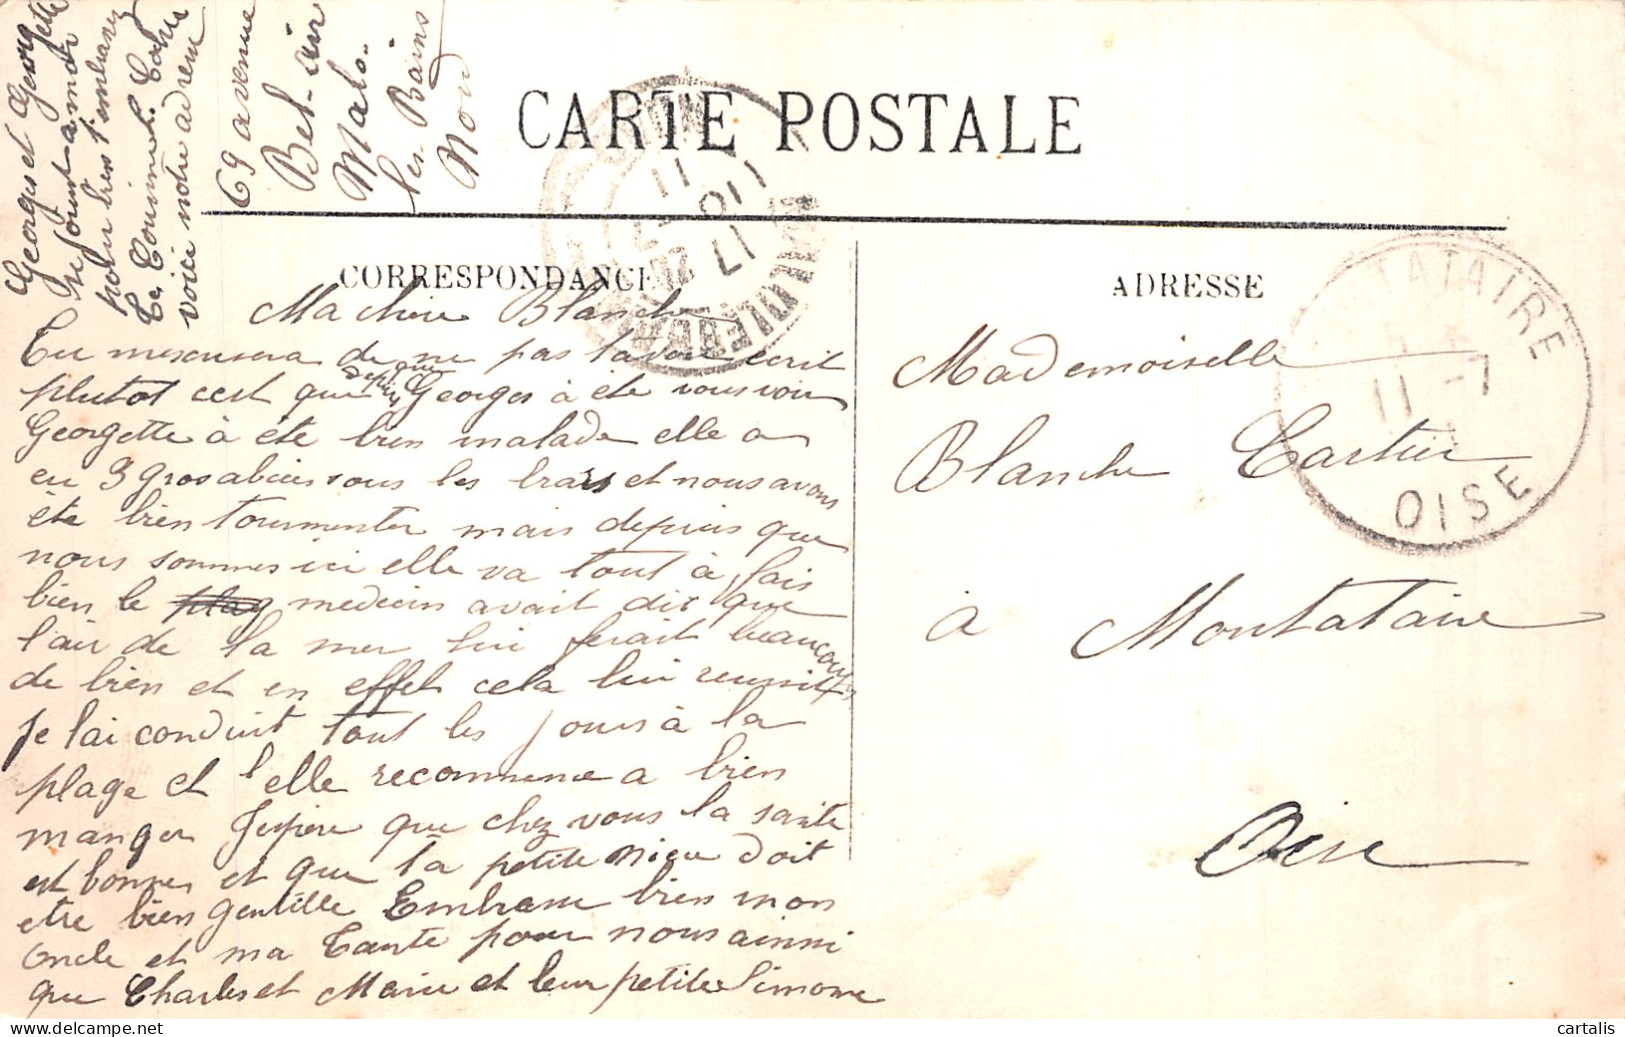 CARTE POSTALE
CORRESPONDANCE
Ma chère Blanche
Tu mexcusera de ne pas tavoir ecrit
plutot cest que depuis que Georges à éte vous voir
Georgette à éte bien malade elle a
eu 3 gros abcies sous les bras et nous avons
éte bien tourmenter mais depuis que
nous sommes ici elle va tout à fais
bien le medecin avait dit que
l'air de la mer lui ferait beaucoup
de bien et en effet cela lui reussit
je lai conduit tout les jours à la
plage et elle recommence a bien
manger Jespère que chez vous la santé
est bonne et que ta petite nièce doit
etre bien gentille Embrasse bien mon
oncle et ma Tante pour nous ainsi
que Charles et Marie et leur petite Simone
Georges et Georgette
se joint a moi
pour bien t'embrasser
Ta Cousine
voici notre adresse
69 avenue
Bel-air
Malo.
les Bains
Nord
ADRESSE
Mademoiselle
Blanche Cartier
à Montataire
Oise
TATAIRE
11 -7
OISE
17
10
11